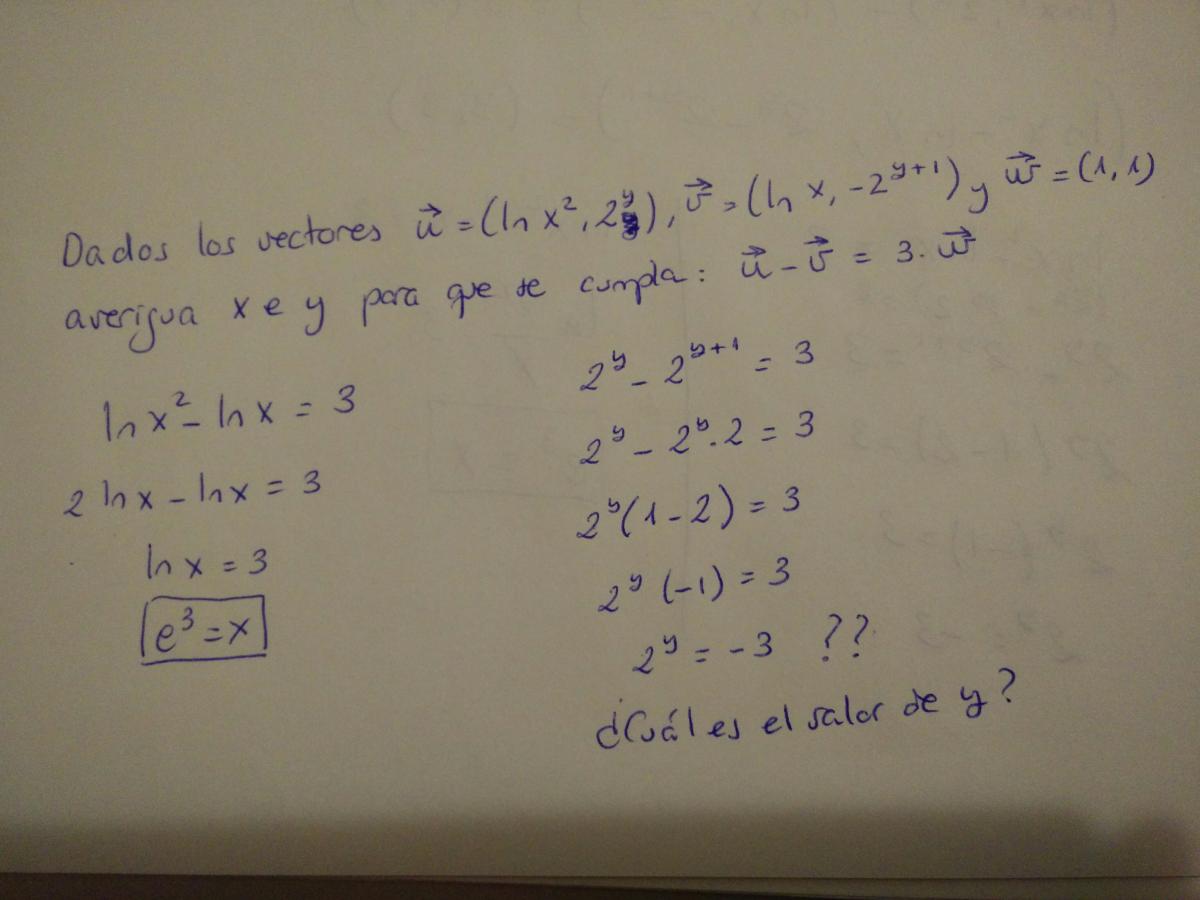 Dados los vectores u⃗ = (ln x², 2^y), v⃗ = (ln x, -2^{y+1}) y w⃗ = (1, 1)
averigua x e y para que se cumpla: u⃗ - v⃗ = 3 · w⃗
ln x² - ln x = 3
2 ln x - ln x = 3
ln x = 3
e³ = x
2^y - 2^{y+1} = 3
2^y - 2^y · 2 = 3
2^y (1 - 2) = 3
2^y (-1) = 3
2^y = -3 ??
¿Cuál es el valor de y?